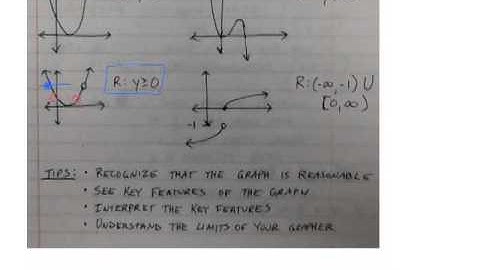 R: y≥0
R: (-∞, -1) U
[0, ∞)
-1
TIPS: • RECOGNIZE THAT THE GRAPH IS REASONABLE
• SEE KEY FEATURES OF THE GRAPH
• INTERPRET THE KEY FEATURES
• UNDERSTAND THE LIMITS OF YOUR GRAPHER